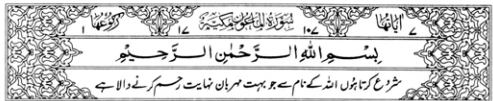 اٰیَاتُهَا ۷ ۱۰۷ سُوْرَةُ الْمَاعُوْنِ مَكِّيَّةٌ ۱۷ رُكُوْعُهَا ۱
بِسْمِ اللّٰهِ الرَّحْمٰنِ الرَّحِيْمِ
شروع کرتا ہوں اللہ کے نام سے جو بہت مہربان نہایت رحم کرنے والا ہے